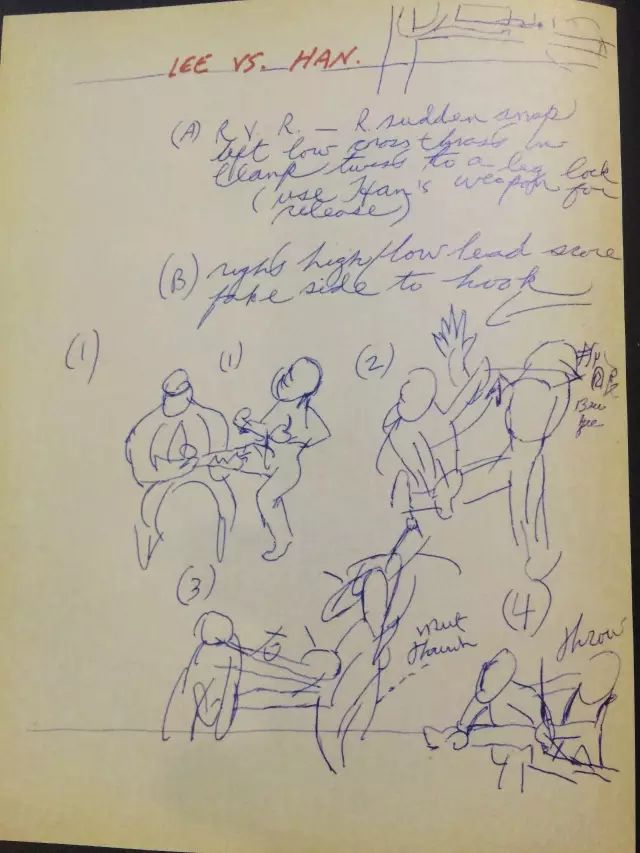 LEE VS. HAN.
(A) R V. R. — R. sudden snap
left low cross thrust in
clamp twist to a leg lock
(use Han's weapon for
release)
(B) right high/low lead score
fake side to hook
(1)
(1)
(2)
(3)
(4)
throw